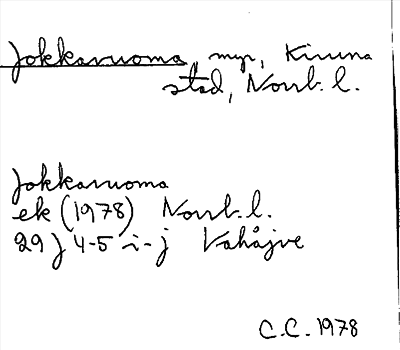 Jokkavuoma, myr, Kiruna
stad, Norrb. l.
Jokkavuoma
ek (1978) Norrb. l.
29 J 4-5 i-j Vahåjve
C.C. 1978